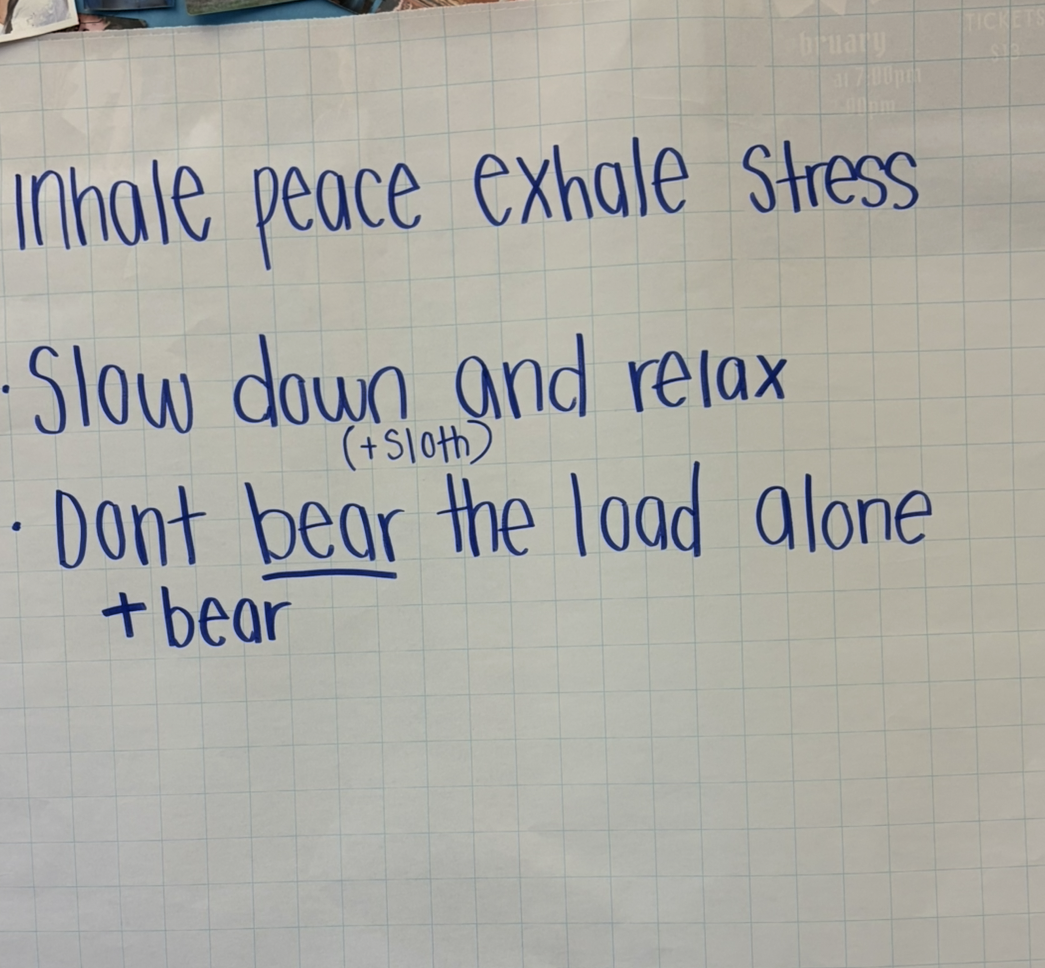 Inhale peace exhale stress
· Slow down and relax
(+ Sloth)
· Dont bear the load alone
+ bear
TICKETS
bruary
at 7:00pm